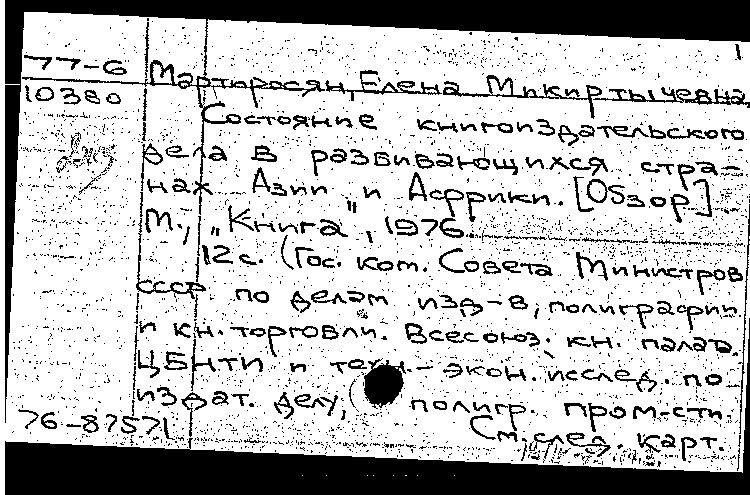 1
77-6 Мартиросян, Елена Микиртычевна
10380
Состояние книгоиздательского
дела в развивающихся стра-
нах Азии и Африки. [Обзор]
М., „Книга", 1976.
12 с. (Гос. ком. Совета Министров
СССР по делам изд-в, полиграфии
и кн. торговли. Всесоюз. кн. палата.
ЦБНТИ и техн.-экон. исслед. по
издат. делу, полигр. пром-сти
76-87571 См. след. карт.